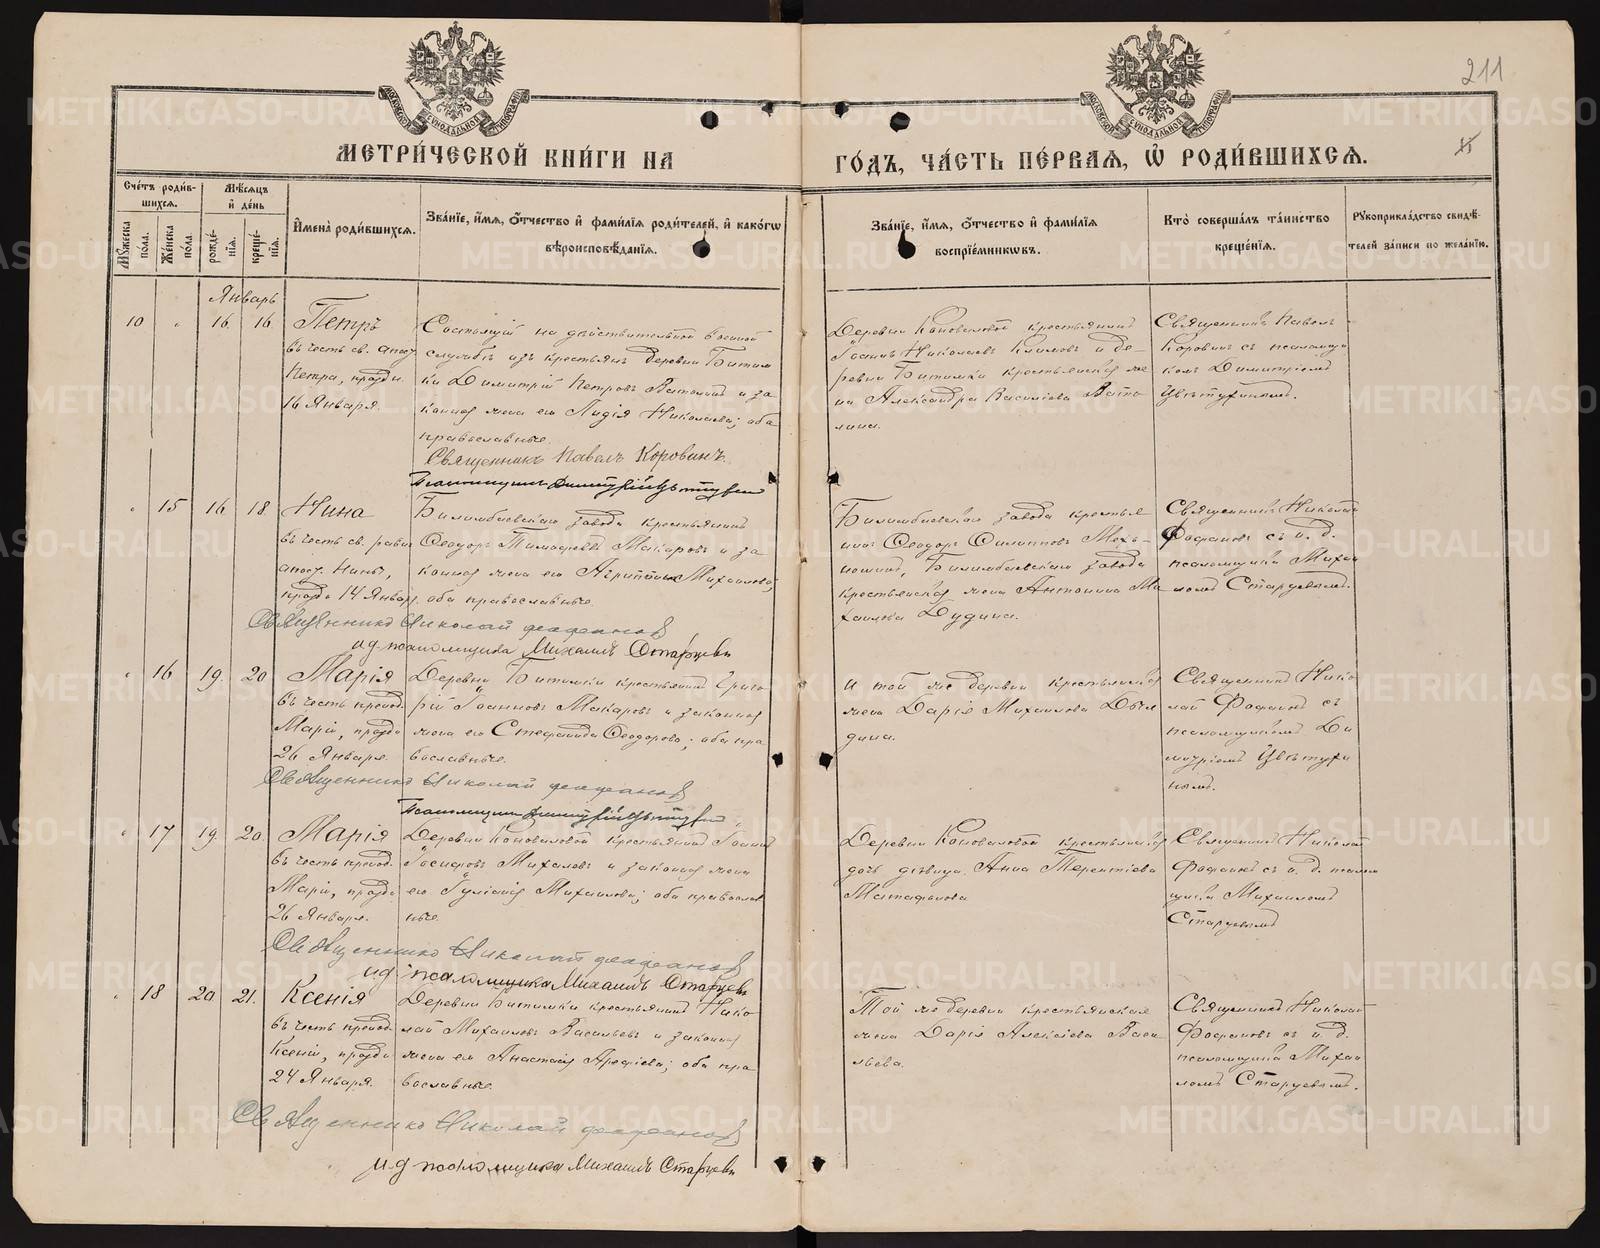 211
МОСКОВСКОЙ СѴНОДАЛЬНОЙ ТИПОГРАФІИ
МОСКОВСКОЙ СѴНОДАЛЬНОЙ ТИПОГРАФІИ
МЕТРИ́ЧЕСКОЙ КНИ́ГИ НА
ГО́ДЪ, ЧА́СТЬ ПЕ́РВАѦ, Ѡ҆ РОДИ́ВШИХСѦ.
Сче́тъ роди́в-
шихсѧ.
Мꙋ́жеска по́ла.
Же́нска по́ла.
Мѣ́сѧцъ
и҆ де́нь
рожде́-нїѧ.
креще́-нїѧ.
И҆мена̀ роди́вшихсѧ.
Зва́нїе, и҆́мѧ, ѻ҆́тчество и҆ фамилїѧ роди́телей, и҆ како́гѡ
вѣроисповѣ́данїѧ.
Зва́нїе, и҆́мѧ, ѻ҆́тчество и҆ фами́лїѧ
воспрїе́мникѡвъ.
Кто̀ соверша́лъ та́инство
креще́нїѧ.
Рꙋкоприкла́дство свидѣ́-
телей за́писи по жела́нїю.
Январь
10 " 16. 16.
Петръ
въ честь св. апост.
Петра, праздн.
16 Января.
Состоящій на дѣйствительной военной
службѣ изъ крестьянъ деревни Битим
ки Димитрій Петровъ Ватолинъ и за
конная жена его Лидія Николаева; оба
православные.
Священникъ Павелъ Коровинъ.
Псаломщикъ Димитрій Цвѣтухинъ
Деревни Коноваловой крестьянинъ
Іоаннъ Николаевъ Климовъ и де-
ревни Битимки крестьянская же
на Александра Василіева Вато
лина.
Священникъ Павелъ
Коровинъ съ псаломщи
комъ Димитріемъ
Цвѣтухинымъ.
" 15 16 18
Нина
въ честь св. равн
апост. Нины,
праздн 14 Января.
Билимбаевскаго завода крестьянинъ
Ѳеодоръ Тимофеевъ Макаровъ и за
конная жена его Агриппина Михаилова;
оба православные.
Священникъ Николай Фофановъ
ид псаломщика Михаилъ Старцевъ
Билимбаевскаго завода крестья
нинъ Ѳеодоръ Филипповъ Мехо-
ношинъ, Билимбаевскаго завода
крестьянская жена Антонина Ми
хаилова Дудина.
Священникъ Николай
Фофановъ съ и. д.
псаломщика Михаи
ломъ Старцевымъ.
" 16 19. 20
Марія
въ честь препод.
Маріи, праздн
26 Января.
Деревни Битимки крестьянинъ Григо
рій Іоанновъ Макаровъ и законная
жена его Стефанида Ѳеодорова; оба пра
вославные.
Священникъ Николай Фофановъ
Псаломщикъ Димитрій Цвѣтухинъ
И той же деревни крестьянская
жена Дарія Михаилова Двил
дина.
Священникъ Нико
лай Фофановъ съ
псаломщикомъ Ди
митріемъ Цвѣтухи
нымъ.
" 17 19. 20.
Марія
въ честь препод.
Маріи, праздн
26 Января.
Деревни Коноваловой крестьянинъ Іоаннъ
Іосифовъ Михалевъ и законная жена
его Іуліанія Михаилова; оба православ
ные.
Священникъ Николай Фофановъ
ид псаломщика Михаилъ Старцевъ
Деревни Коноваловой крестьянская
дочь дѣвица Анна Терентіева
Матафонова
Священникъ Николай
Фофановъ съ и. д. псалом
щика Михаиломъ
Старцевымъ
" 18 20 21.
Ксенія
въ честь препод.
Ксеніи, праздн
24 Января.
Деревни Битимки крестьянинъ Нико
лай Михаиловъ Васильевъ и законная
жена его Анастасія Арефіева; оба пра
вославные.
Священникъ Николай Фофановъ
ид псаломщика Михаилъ Старцевъ
Той же деревни крестьянская
жена Дарія Алексіева Васи
льева.
Священникъ Николай
Фофановъ съ и. д.
псаломщика Михаи
ломъ Старцевымъ.
METRIKI.GASO-URAL.RU